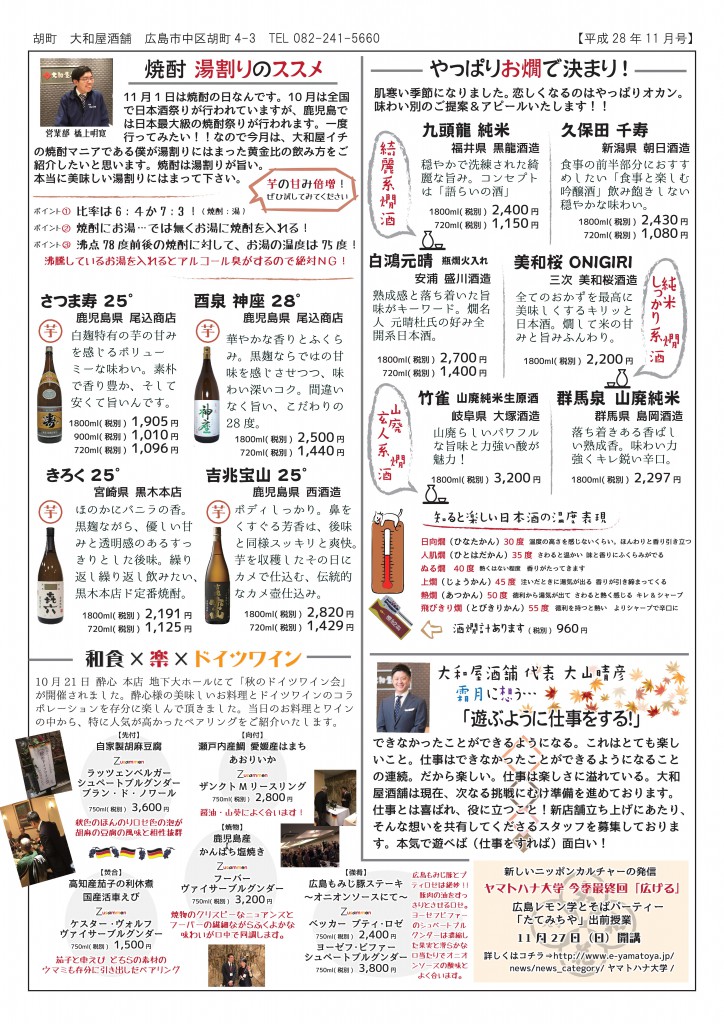 胡町　大和屋酒舗　広島市中区胡町4-3　TEL 082-241-5660
【平成28年11月号】
焼酎 湯割りのススメ
営業部 橋上明寛
11月1日は焼酎の日なんです。10月は全国
で日本酒祭りが行われていますが、鹿児島で
は日本最大級の焼酎祭りが行われます。一度
行ってみたい！！なので今月は、大和屋イチ
の焼酎マニアである僕が湯割りにはまった黄金比の飲み方をご
紹介したいと思います。焼酎は湯割りが旨い。
本当に美味しい湯割りにはまって下さい。
芋の甘み倍増！
ぜひ試してみてください
ポイント① 比率は6：4か7：3！（焼酎：湯）
ポイント② 焼酎にお湯…では無くお湯に焼酎を入れる！
ポイント③ 沸点78度前後の焼酎に対して、お湯の温度は75度！
沸騰しているお湯を入れるとアルコール臭がするので絶対NG！
さつま寿 25°
鹿児島県 尾込商店
芋
白麹特有の芋の甘み
を感じるボリュー
ミーな味わい。素朴
で香り豊か、そして
安くて旨いんです。
1800ml(税別) 1,905円
900ml(税別) 1,010円
720ml(税別) 1,096円
酉泉 神座 28°
鹿児島県 尾込商店
芋
華やかな香りとふくら
み。黒麹ならではの甘
味を感じさせつつ、味
わい深いコク。間違い
なく旨い、こだわりの
28度。
1800ml(税別) 2,500円
720ml(税別) 1,440円
きろく 25°
宮崎県 黒木本店
芋
ほのかにバニラの香。
黒麹ながら、優しい甘
みと透明感のあるすっ
きりとした後味。繰り
返し繰り返し飲みたい、
黒木本店ド定番焼酎。
1800ml(税別) 2,191円
720ml(税別) 1,125円
吉兆宝山 25°
鹿児島県 西酒造
芋
ボディしっかり。鼻を
くすぐる芳香は、後味
と同様スッキリと爽快。
芋を収穫したその日に
カメで仕込む、伝統的
なカメ壺仕込み。
1800ml(税別) 2,820円
720ml(税別) 1,429円
和食×楽×ドイツワイン
10月21日 酔心 本店 地下大ホールにて「秋のドイツワイン会」
が開催されました。酔心様の美味しいお料理とドイツワインのコラ
ボレーションを存分に楽しんで頂きました。当日のお料理とワイン
の中から、特に人気が高かったペアリングをご紹介いたします。
【先付】
自家製胡麻豆腐
Zusammen
ラッツェンベルガー
シュペートブルグンダー
ブラン・ド・ノワール
750ml(税別) 3,600円
秋色のほんのりロゼ色の泡が
胡麻の豆腐の風味と相性抜群
【向付】
瀬戸内産鯛 愛媛産はまち
あおりいか
Zusammen
ザンクトMリースリング
750ml(税別) 2,800円
醤油・山葵によく合います！
【焼物】
鹿児島産
かんぱち塩焼き
Zusammen
フーバー
ヴァイサーブルグンダー
750ml(税別) 3,200円
焼物のクリスピーなニュアンスと
フーバーの繊細ながらふくよかな
味わいが口中で同調します。
【焚合】
高知産茄子の利休煮
国産活車えび
Zusammen
ケスター・ヴォルフ
ヴァイサーブルグンダー
750ml(税別) 1,500円
茄子と車えび どちらの素材の
ウマミも存分に引き出したペアリング
【強肴】
広島もみじ豚ステーキ
～オニオンソースにて～
Zusammen
ベッカー プティ・ロゼ
750ml(税別) 2,400円
ヨーゼフ・ビファー
シュペートブルグンダー
750ml(税別) 3,800円
広島もみじ豚とプ
ティロゼは絶妙！！
豚肉の油をすっ
きりとさせるロゼ。
ヨーゼフビファー
のシュペートブル
グンダーは凝縮し
た果実と滑らかな
口当たりでオニオ
ンソースの酸味と
よく合います。
やっぱりお燗で決まり！
肌寒い季節になりました。恋しくなるのはやっぱりオカン。
味わい別のご提案＆アピールいたします！！
綺麗系燗酒
九頭龍 純米
福井県 黒龍酒造
穏やかで洗練された綺
麗な旨み。コンセプト
は「語らいの酒」
1800ml(税別) 2,400円
720ml(税別) 1,150円
久保田 千寿
新潟県 朝日酒造
食事の前半部分におすす
めしたい「食事と楽しむ
吟醸酒」飲み飽きしない
穏やかな味わい。
1800ml(税別) 2,430円
720ml(税別) 1,080円
白鴻元晴 瓶燗火入れ
安浦 盛川酒造
熟成感と落ち着いた旨
味がキーワード。燗名
人 元晴杜氏の好み全
開系日本酒。
1800ml(税別) 2,700円
720ml(税別) 1,400円
美和桜 ONIGIRI
三次 美和桜酒造
全てのおかずを最高に
美味しくするキリッと
日本酒。燗して米の甘
みと旨みふんわり。
1800ml(税別) 2,200円
純米しっかり系燗酒
山廃玄人系燗酒
竹雀 山廃純米生原酒
岐阜県 大塚酒造
山廃らしいパワフル
な旨味と力強い酸が
魅力！
1800ml(税別) 3,200円
群馬泉 山廃純米
群馬県 島岡酒造
落ち着きある香ばし
い熟成香。味わい力
強くキレ鋭い辛口。
1800ml(税別) 2,297円
知ると楽しい日本酒の温度表現
日向燗（ひなたかん）30度　温度の高さを感じないくらい。ほんわりと香り引き立つ
人肌燗（ひとはだかん）35度　さわると温かい 味と香りにふくらみがでる
ぬる燗　40度　熱くはない程度　香りがたってきます
上燗（じょうかん）45度　注いだときに湯気が出る 香りが引き締まってくる
熱燗（あつかん）50度　徳利から湯気が出て さわると熱く感じる キレ＆シャープ
飛びきり燗（とびきりかん）55度　徳利を持つと熱い　よりシャープで辛口に
酒燗計あります（税別）960円
大和屋酒舗 代表 大山晴彦
霜月に想う…
「遊ぶように仕事をする！」
できなかったことができるようになる。これはとても楽し
いこと。仕事はできなかったことができるようになること
の連続。だから楽しい。仕事は楽しさに溢れている。大和
屋酒舗は現在、次なる挑戦にむけ準備を進めております。
仕事とは喜ばれ、役に立つこと！新店舗立ち上げにあたり、
そんな想いを共有してくださるスタッフを募集しておりま
す。本気で遊べば（仕事をすれば）面白い！
新しいニッポンカルチャーの発信
ヤマトハナ大学 今季最終回『広げる』
広島レモン学とそばパーティー
「たてみちや」出前授業
11月27日（日）開講
詳しくはコチラ⇒http://www.e-yamatoya.jp/
news/news_category/ヤマトハナ大学/